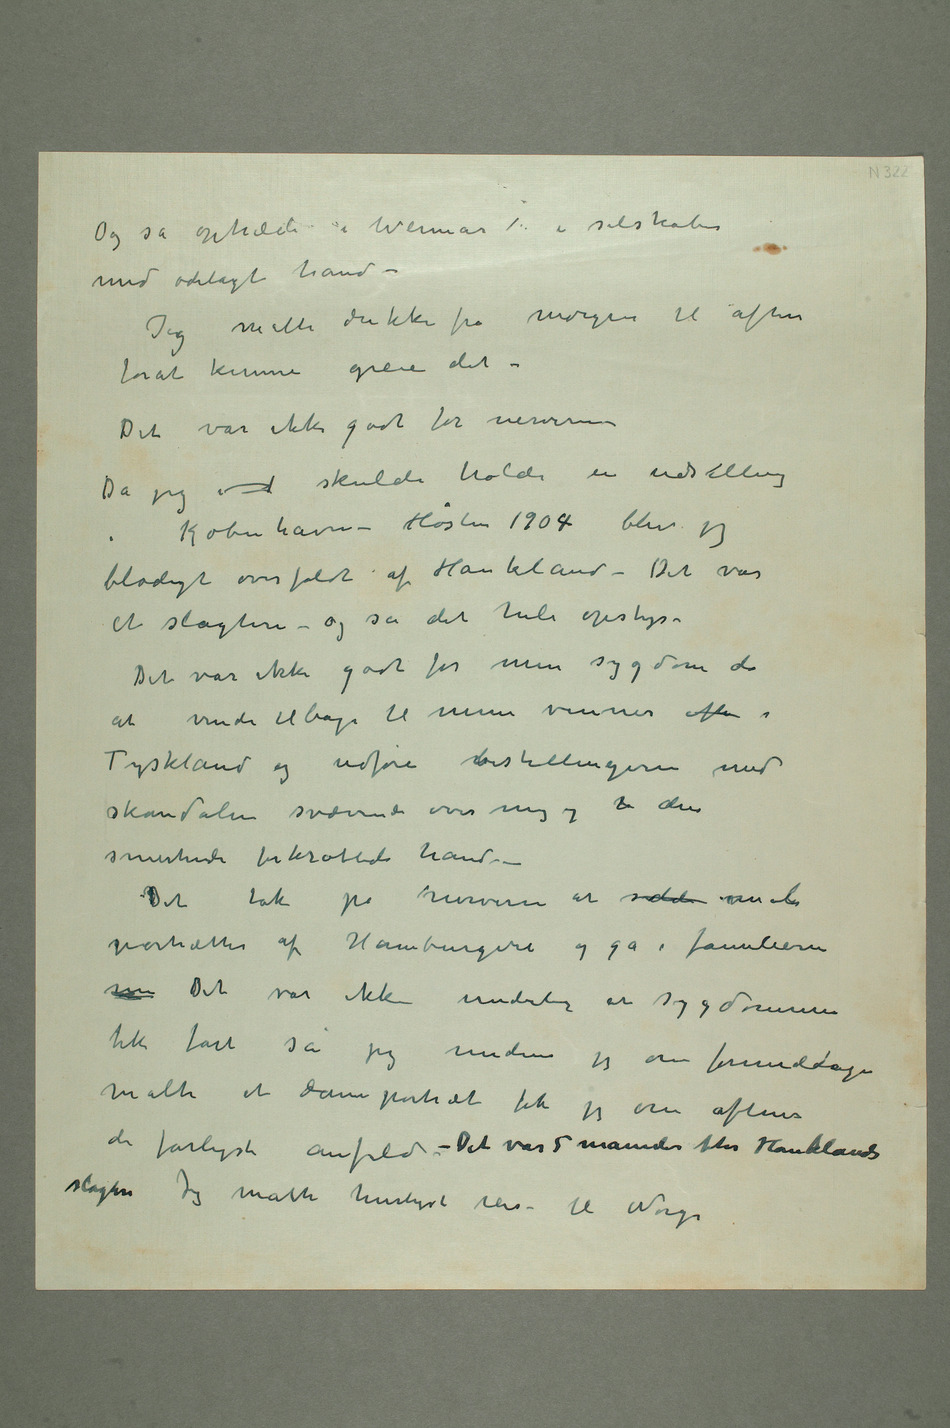 N 322
Og så optræde i Weimar i selskaber
med ødelagt hånd –
Jeg måtte drikke fra morgen til aften
forat kunne greie det –
Det var ikke godt for nerverne
Da jeg skulde holde en udstilling
i København – Høsten 1904 blev jeg
blodigt overfaldt af Haukland – Det var
et slagteri – og så det hele opstyr –
Det var ikke godt for min sygdom da
at vende tilbage til mine venner i
Tyskland og udføre bestillingerne med
skandalen svævende over mig og den
smertende forkrøblede hånd –
Det tok på nerverne at male
portrætter af Hamburgere og gå i familierne
Det var ikke underlig at sygdommen
tok fart så jeg medens jeg om formiddagen
malte et dameportræt fik jeg om aftenen
de farligste anfald – Det var 5 måneder efter Hauklands
slagteri Jeg måtte hurtigst reise til Norge